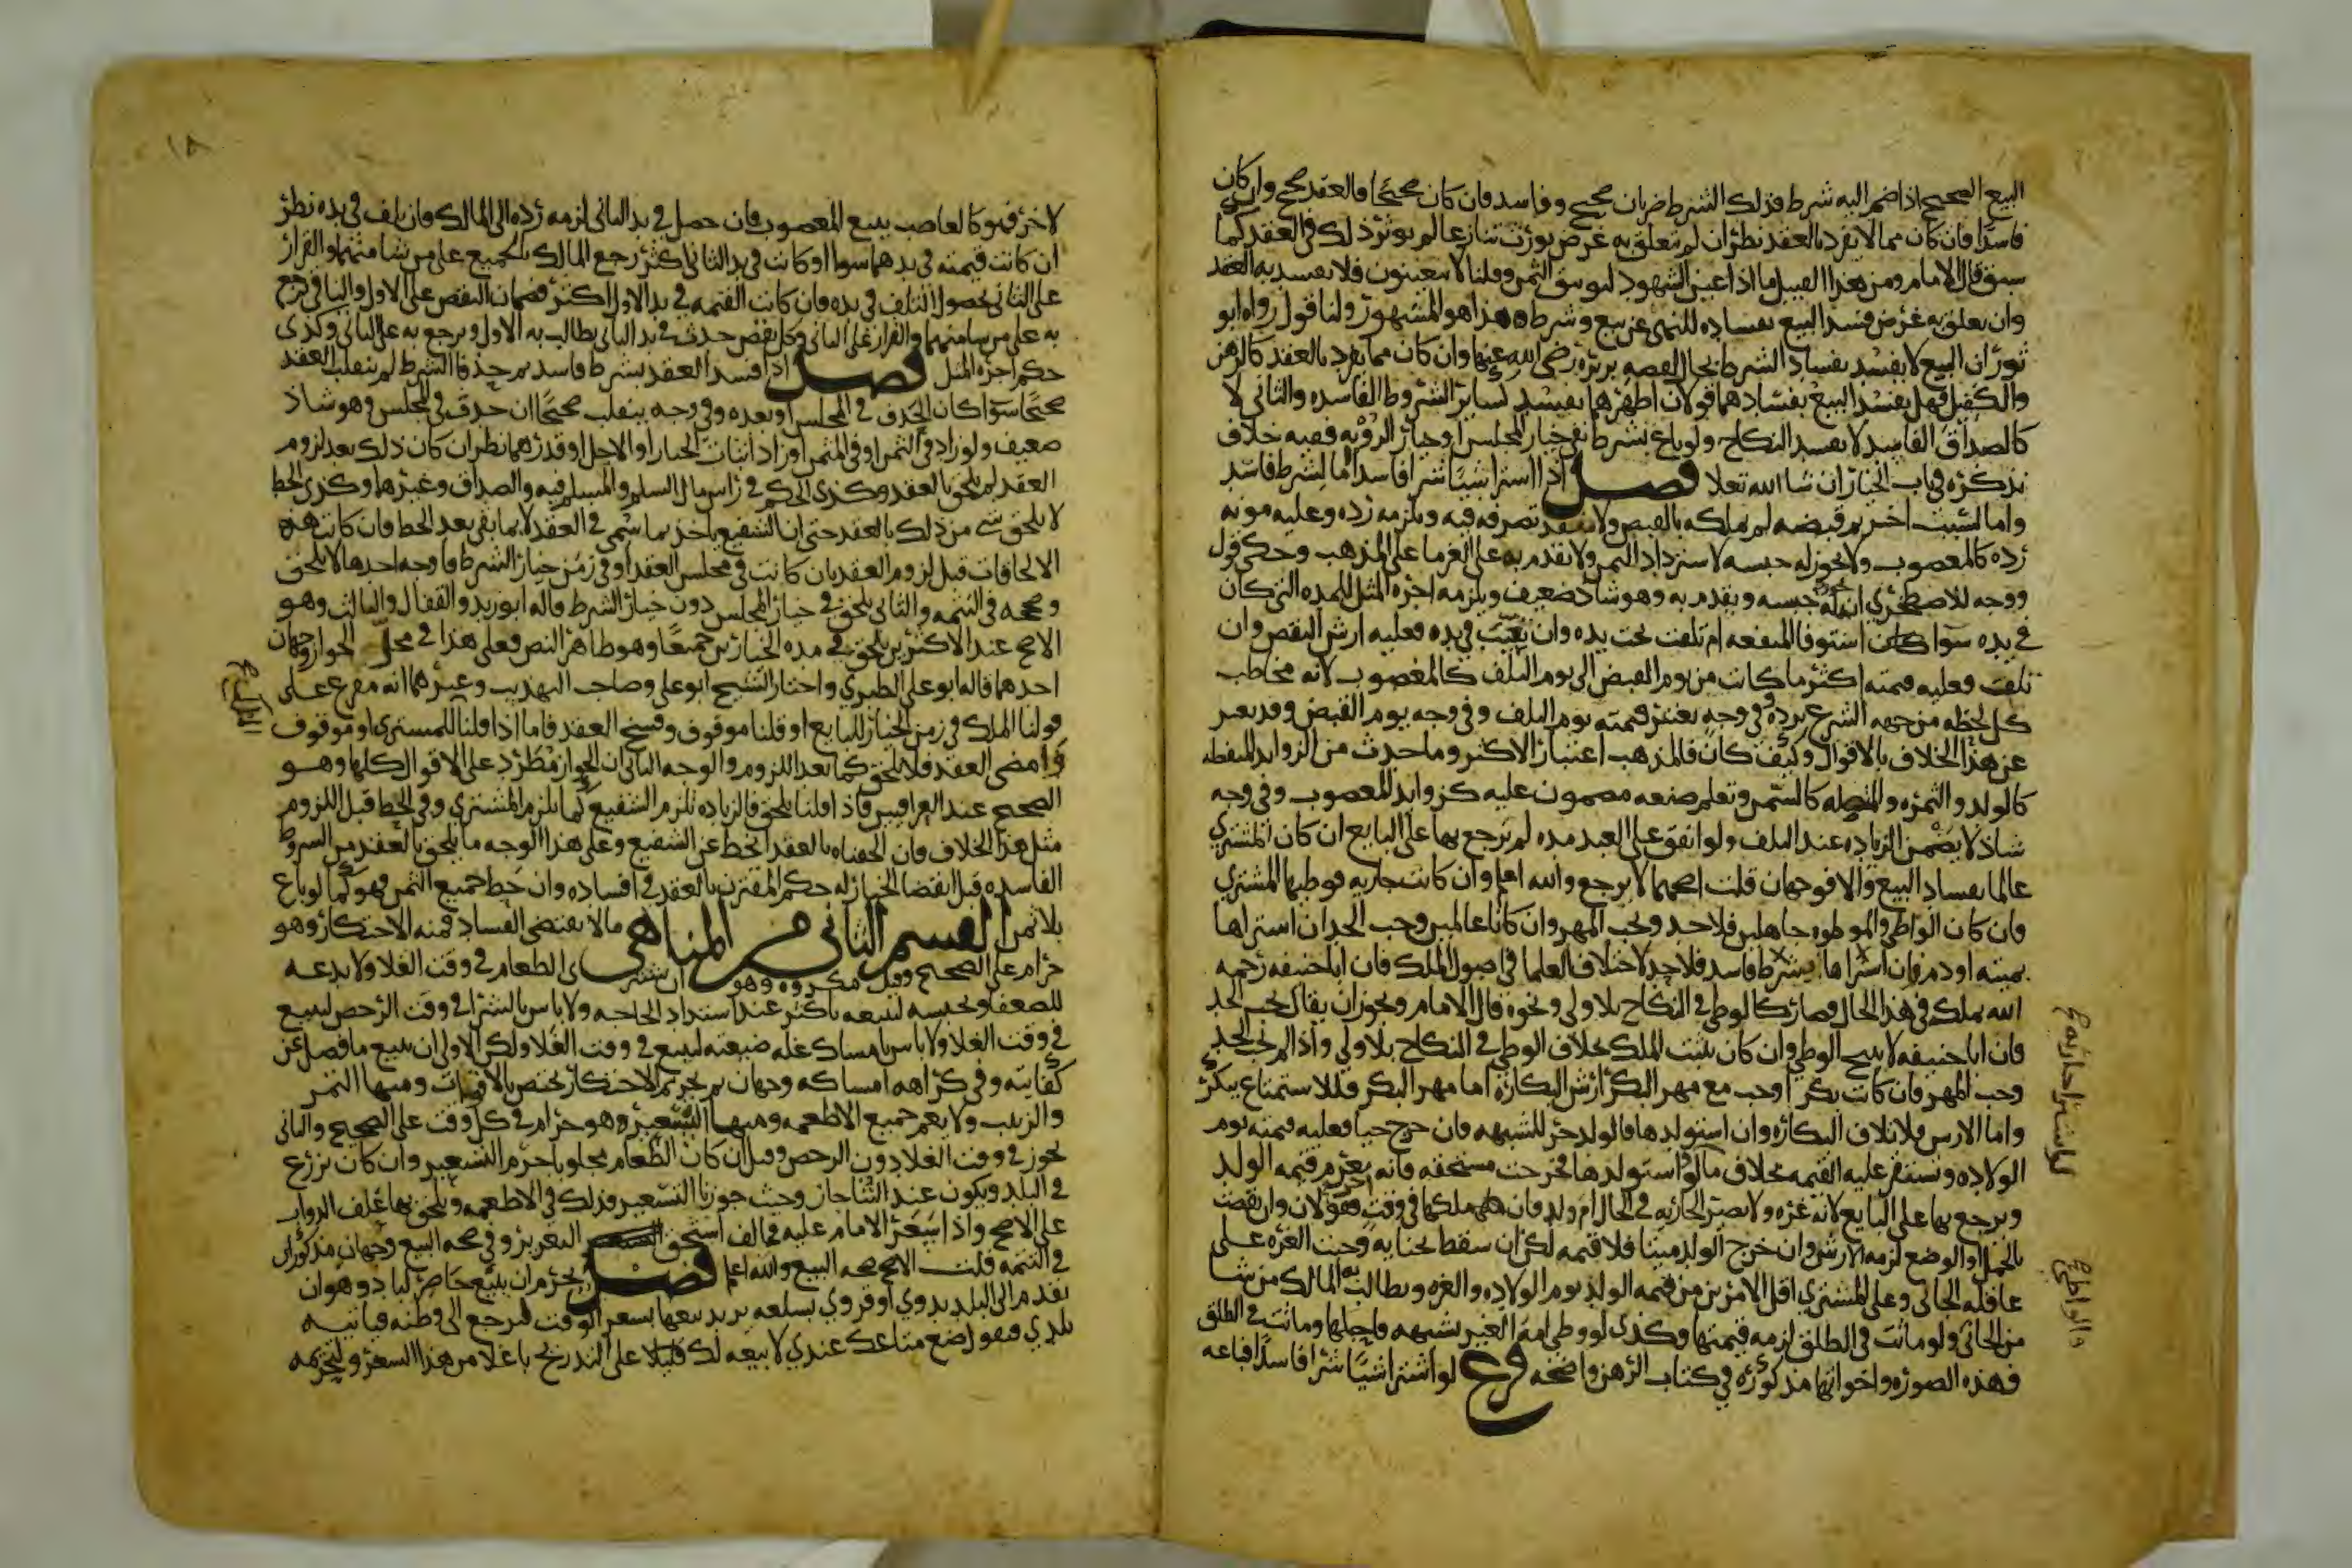 البيع الصحيح اذا ضم اليه شرط فذلك الشرط ضربان صحيح وفاسد فان كان صحيحا فالعقد صحيح وان كان
فاسدا فان كان مما لا يفرد بالعقد نظر ان لم يتعلق به غرض يورث تنازعا لم يوثر ذلك في العقد كما
سبق قال الامام ومن هذا القبيل ما اذا عين الشهود لتوثيق الثمن وقلنا لا يتعينون فلا يفسد به العقد
وان تعلق به غرض فسد البيع بفساده للنهي عن بيع وشرط هذا هو المشهور ولنا قول رواه ابو
ثور ان البيع لا يفسد بفساد الشرط بحال لقصه بريرة رضي الله عنها وان كان مما يفرد بالعقد كالرهن
والكفيل فهل يفسد البيع بفسادهما قولان اظهرهما يفسد كسائر الشروط الفاسده والثاني لا
كالصداق الفاسد لا يفسد النكاح ولو باع بشرط نفي خيار المجلس او خيار الرؤيه ففيه خلاف
نذكره في باب الخيار ان شا الله تعلا فصل اذا اشترا شيا شرا فاسدا اما لشرط فاسد
واما لسبب اخر ثم قبضه لم يملكه بالقبض ولا ينفذ تصرفه فيه ويلزمه رده وعليه مونه
رده كالمغصوب ولا يجوز له حبسه لاسترداد الثمن ولا يقدم به على الغرما على المذهب وحكي قول
ووجه للاصطخري ان له حبسه ويقدم به وهو شاذ ضعيف ويلزمه اجره المثل للمده التي كان
في يده سوا كان استوفا المنفعه ام تلفت تحت يده وان تعيب في يده فعليه ارش النقص وان
تلف فعليه قيمته اكثر ما كانت من يوم القبض الى يوم التلف كالمغصوب لانه مخاطب
كل لحظه من جهه الشرع برده وفي وجه تعتبر قيمته يوم التلف وفي وجه يوم القبض وقد يعبر
عن هذا الخلاف بالاقوال وكيف كان فالمذهب اعتبار الاكثر وما حدث من الزوايد المنفصله
كالولد والثمره والمتصله كالسمن وتعلم صنعه مضمون عليه كزوايد المغصوب وفي وجه
شاذ لا يضمن الزياده عند التلف ولو انفق على العبد مده لم يرجع بها على البايع ان كان المشتري
عالما بفساد البيع والا فوجهان قلت اصحهما لا يرجع والله اعلم وان كانت جاريه فوطيها المشتري
فان كان الواطي والموطوه جاهلين فلا حد ويجب المهر وان كانا عالمين وجب الحد ان اشتراها
بميته او دم وان اشتراها بشرط فاسد فلا حد لاختلاف العلما في حصول الملك فان ابا حنيفه رحمه
الله يملك في هذا الحال فصار كالوطي في النكاح بلا ولي ونحوه قال الامام ويجوز ان يقال يجب الحد
فان ابا حنيفه لا يبيح الوطي وان كان يثبت الملك بخلاف الوطي في النكاح بلا ولي واذا لم يجب الحد
وجب المهر فان كانت بكرا وجب مع مهر البكر ارش البكاره اما مهر البكر فللاستمتاع ببكر
واما الارش فلاتلاف البكاره وان استولدها فالولد حر للشبهه فان خرج حيا فعليه قيمته يوم
الولاده وتستقر عليه القيمه بخلاف ما لو استولدها فخرجت مستحقه فانه يغرم قيمه الولد
ويرجع بها على البايع لانه غره ولا تصير الجاريه في الحال ام ولد فان ملكها في وقت اخر فقولان وان نقصت
بالحمل او الوضع لزمه الارش وان خرج الولد ميتا فلا قيمه لكن ان سقط بجنايه وجبت الغره على
عاقله الجاني وعلى المشتري اقل الامرين من قيمه الولد يوم الولاده والغره ويطالب به المالك من شا
من الجاني ولو ماتت في الطلق لزمه قيمتها وكذى لو وطي امه الغير بشبهه فاحبلها وماتت في الطلق
وهذه الصوره واخواتها مذكوره في كتاب الرهن واضحه فرع لو اشترا شيا شرا فاسدا فباعه
لاخر فهو كالغاصب يبيع المغصوب فان حصل في يد الثاني لزمه رده الى المالك فان تلف في يده نظر
ان كانت قيمته في يدهما سوا او كانت في يد الثاني اكثر رجع المالك بالجميع على من شا منهما والقرار
على الثاني لحصول التلف في يده وان كانت القيمه في يد الاول اكثر فضمان النقص على الاول والباقي يرجع
به على من شا منهما والقرار على الثاني وكل نقص حدث في يد الثاني يطالب به الاول ويرجع به على الثاني وكذى
حكم اجره المثل فصل اذا فسد العقد بشرط فاسد ثم حذفا الشرط لم ينقلب العقد
صحيحا سوا كان الحذف في المجلس او بعده وفي وجه ينقلب صحيحا ان حذف في المجلس وهو شاذ
ضعيف ولو زاد في الثمن او في المثمن او زاد اثبات الخيار او الاجل او قدرهما نظر ان كان ذلك بعد لزوم
العقد لم يلحق بالعقد وكذى الحكم في راس مال السلم والمسلم فيه والصداق وغيرها وكذى الحط
لا يلحق شي من ذلك بالعقد حتى ان الشفيع ياخذ بما سمي في العقد لا بما بقي بعد الحط فان كانت هذه
الالحاقات قبل لزوم العقد بان كانت في مجلس العقد او في زمن خيار الشرط فاوجه احدها لا يلحق
وصححه في التتمه والثاني يلحق في خيار المجلس دون خيار الشرط قاله ابو زيد والقفال والثالث وهو
الاصح عند الاكثرين يلحق في مده الخيارين جميعا وهو ظاهر النص فعلى هذا في محل الجواز وجهان
احدهما قاله ابو علي الطبري واختار الشيخ ابو علي وصاحب التهذيب وغيرهما انه مفرع على
قولنا الملك في زمن الخيار للبايع او قلنا موقوف وفسخ العقد فاما اذا قلنا للمشتري او موقوف
وامضى العقد فلا يلحق كما بعد اللزوم والوجه الثاني ان الجواز مطرد على الاقوال كلها وهو
الصحيح عند العراقيين فاذا قلنا يلحق فالزياده تلزم الشفيع كما تلزم المشتري وفي الحط قبل اللزوم
مثل هذا الخلاف فان الحقناه بالعقد انحط عن الشفيع وعلى هذا الوجه ما يلحق بالعقد من الشروط
الفاسده قبل انقضا الخيار له حكم المقترن بالعقد في افساده وان حط جميع الثمن فهو كما لو باع
بلا ثمن القسم الثاني من المناهي ما لا يقتضي الفساد فمنه الاحتكار وهو
حرام على الصحيح وقيل مكروه وهو ان يشتري الطعام في وقت الغلا ولا يدعه
للضعفا ويحبسه ليبيعه باكثر عند اشتداد الحاجه ولا باس بالشرا في وقت الرخص ليبيع
في وقت الغلا ولا باس بامساك غله ضيعته ليبيع في وقت الغلا ولكن الاولى ان يبيع ما فضل عن
كفايته وفي كراهه امساكه وجهان ثم تحريم الاحتكار يختص بالاقوات ومنها التمر
والزبيب ولا يعم جميع الاطعمه ومنها التسعير وهو حرام في كل وقت على الصحيح والثاني
يجوز في وقت الغلا دون الرخص وقيل ان كان الطعام مجلوبا حرم التسعير وان كان يزرع
في البلد ويكون عند التنا جاز وحيث جوزنا التسعير فذلك في الاطعمه ويلحق بها علف الدواب
على الاصح واذا سعر الامام عليه فخالف استحق التعزير وفي صحه البيع وجهان مذكوران
في التتمه قلت الاصح صحه البيع والله اعلم فصل يحرم ان يبيع حاضر لباد وهو ان
يقدم الى البلد بدوي او قروي بسلعه يريد بيعها بسعر الوقت ليرجع الى وطنه فياتيه
بلدي فيقول ضع متاعك عندي لابيعه لك قليلا على التدريج باغلا من هذا السعر ولتحريمه
١٨